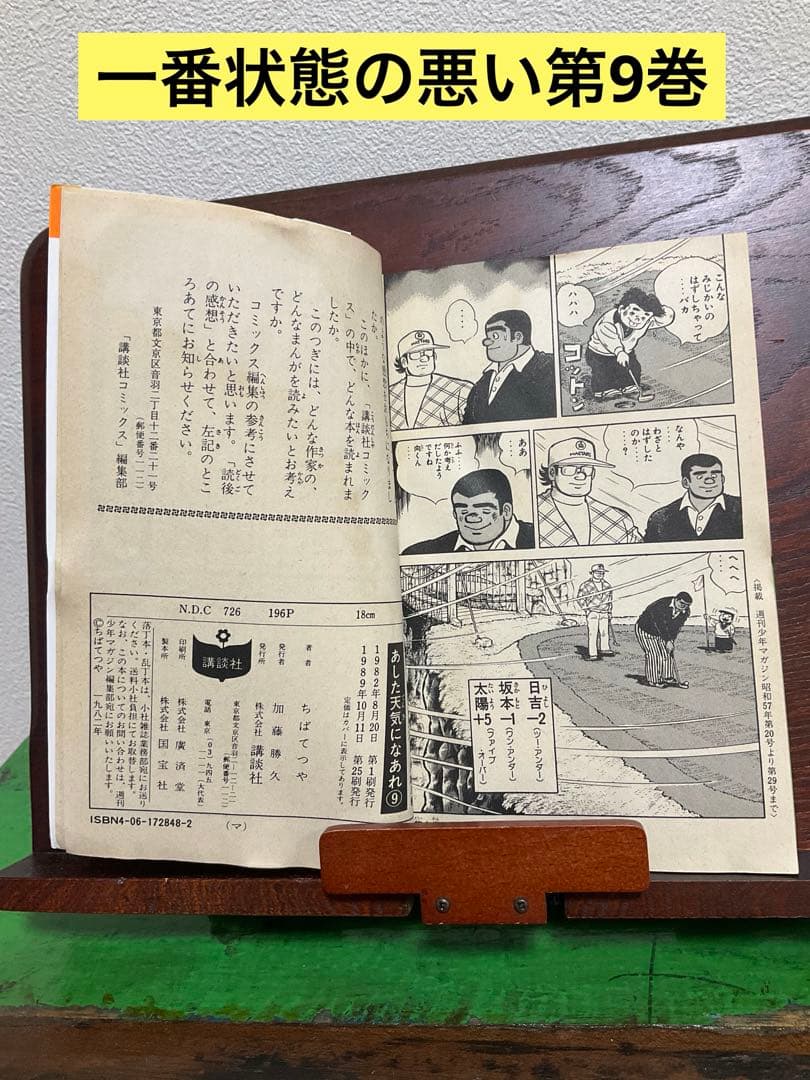 一番状態の悪い第9巻
こんな
みじかいの
はずしちゃって
……バカ
ハハハ
コットン
・・・・
なんや
わざと
はずした
のか……
…?
ああ
…
ふふ…
何か考え
だしたよう
ですね
向くん
・・・・
へへへ
日吉−2(ツーアンダー)
坂本−1(ワンアンダー)
太陽+5(ファイブオーバー)
〈掲載 週刊少年マガジン昭和57年第20号より第29号まで〉
たか。
このほかに、「講談社コミック
ス」の中で、どんな本を読まれま
したか。
このつぎには、どんな作家の、
どんなまんがを読みたいとお考え
ですか。
コミックス編集の参考にさせて
いただきたいと思います。「読後
の感想」と合わせて、左記のとこ
ろあてにお知らせください。
東京都文京区音羽二丁目十二番二十一号
(郵便番号一一二)
「講談社コミックス」編集部
N.D.C 726 196P 18cm
あした天気になあれ⑨
1982年8月20日 第1刷発行
1989年10月11日 第25刷発行
定価はカバーに表示してあります。
著者 ちばてつや
発行者 加藤勝久
発行所 株式会社 講談社
東京都文京区音羽二-一二-二一
郵便番号 一一二
電話 東京(〇三)九四五-一一一一(大代表)
講談社
印刷所 株式会社 廣済堂
製本所 株式会社 国宝社
落丁本・乱丁本は、小社雑誌業務部宛にお送り
ください。送料小社負担にてお取替します。
なお、この本についてのお問い合わせは、週刊
少年マガジン編集部宛にお願いいたします。
©ちばてつや 一九八二年
ISBN4-06-172848-2 (マ)